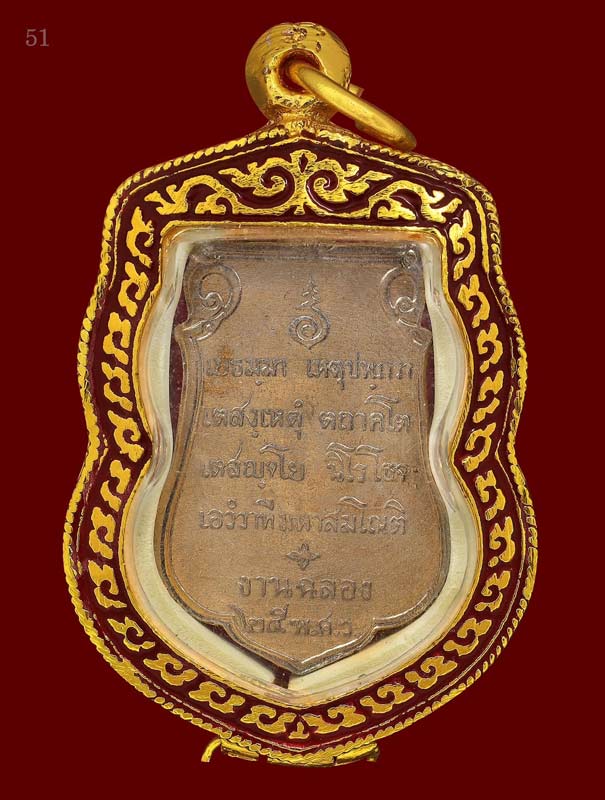 51
เยธมฺมา เหตุปพฺภวา
เตสงฺเหตุํ ตถาคโต
เตสญฺจโย นิโรโธจ
เอวํวาที มหาสมโณติ
งานฉลอง
๒๕ พ.ศ.ว.